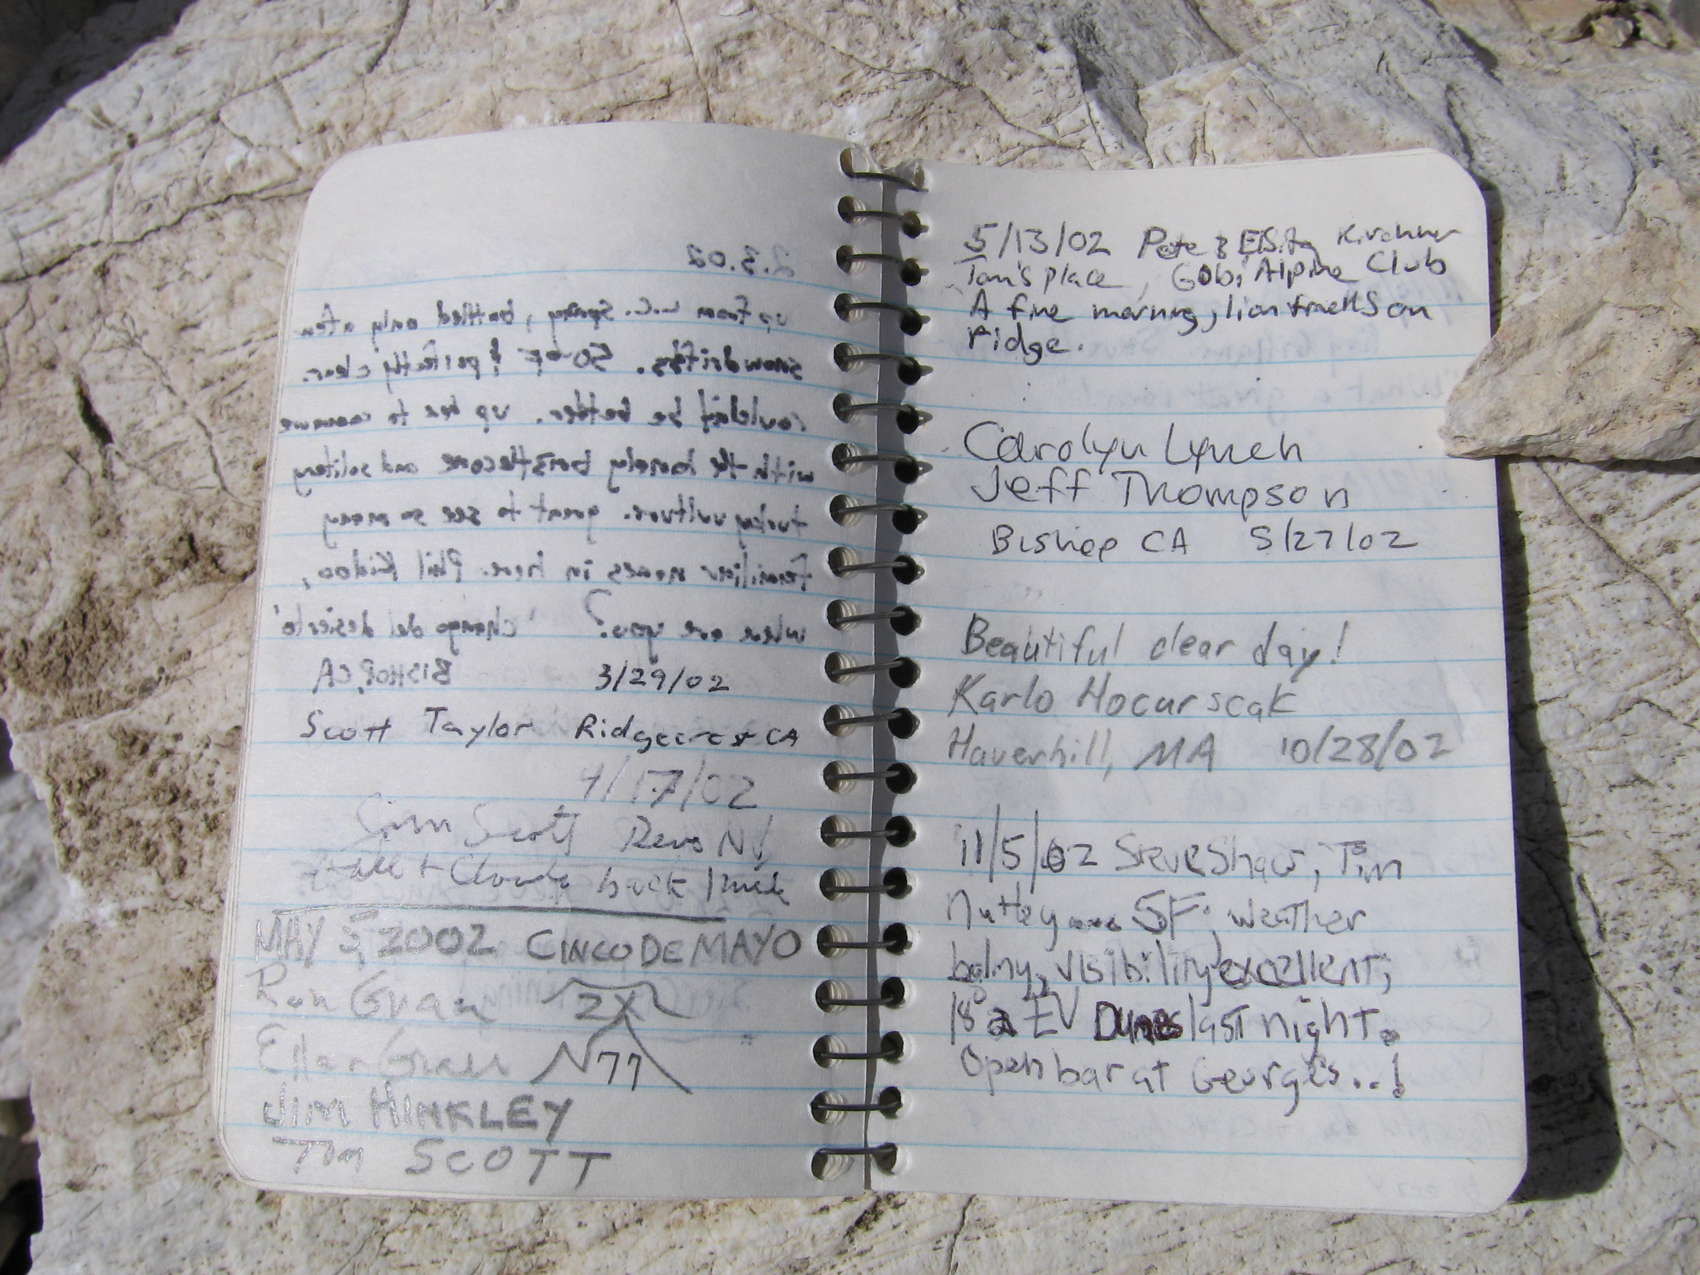 2.3.02
up from W.C. Spring, battled only a few
snowdrifts. 50°F & perfectly clear.
couldn't be better. up here to commune
with the lonely bristlecone and solitary
turkey vulture. great to see so many
familiar names in here. Phil Kidoo,
where are you? 'chango del desierto'
BISHOP, CA 3/29/02
Scott Taylor Ridgecrest CA
4/17/02
Scott Reno NV
back
MAY 5, 2002 CINCO DE MAYO
Ron 2X
Ellen N77
Jim HINKLEY
Tim SCOTT
5/13/02 Pete & Kirchner
Tom's place, Gobi Alpine Club
A fine morning, lion tracks on
ridge.
Carolyn Lynch
Jeff Thompson
Bishop CA 5/27/02
Beautiful clear day!
Karlo Hocurscak
Haverhill, MA 10/28/02
11/5/02 Steve Shaw, Tim
Nutley SF; weather
balmy, visibility excellent;
18° @ EV Dunes last night.
Open bar at George's..!